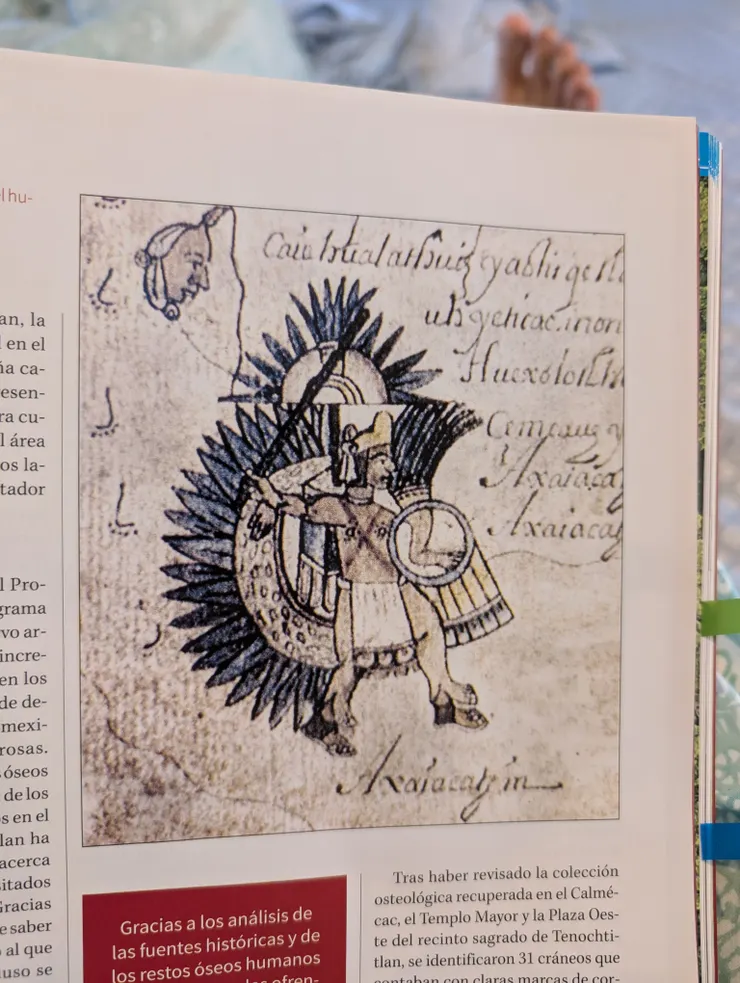 el hu-
an, la
l en el
ña ca-
esen-
ra cu-
l área
os la-
tador
l Pro-
grama
vo ar-
incre-
en los
de de-
mexi-
rosas.
óseos
de los
os en el
lan ha
acerca
sitados
Gracias
e saber
al que
luso se
Huexotzin
Axaiaca
Axaiacat
Axaiacatzin
Gracias a los análisis de
las fuentes históricas y de
los restos óseos humanos
ofren-
Tras haber revisado la colección
osteológica recuperada en el Calmé-
cac, el Templo Mayor y la Plaza Oes-
te del recinto sagrado de Tenochti-
tlan, se identificaron 31 cráneos que
contaban con claras marcas de cor-